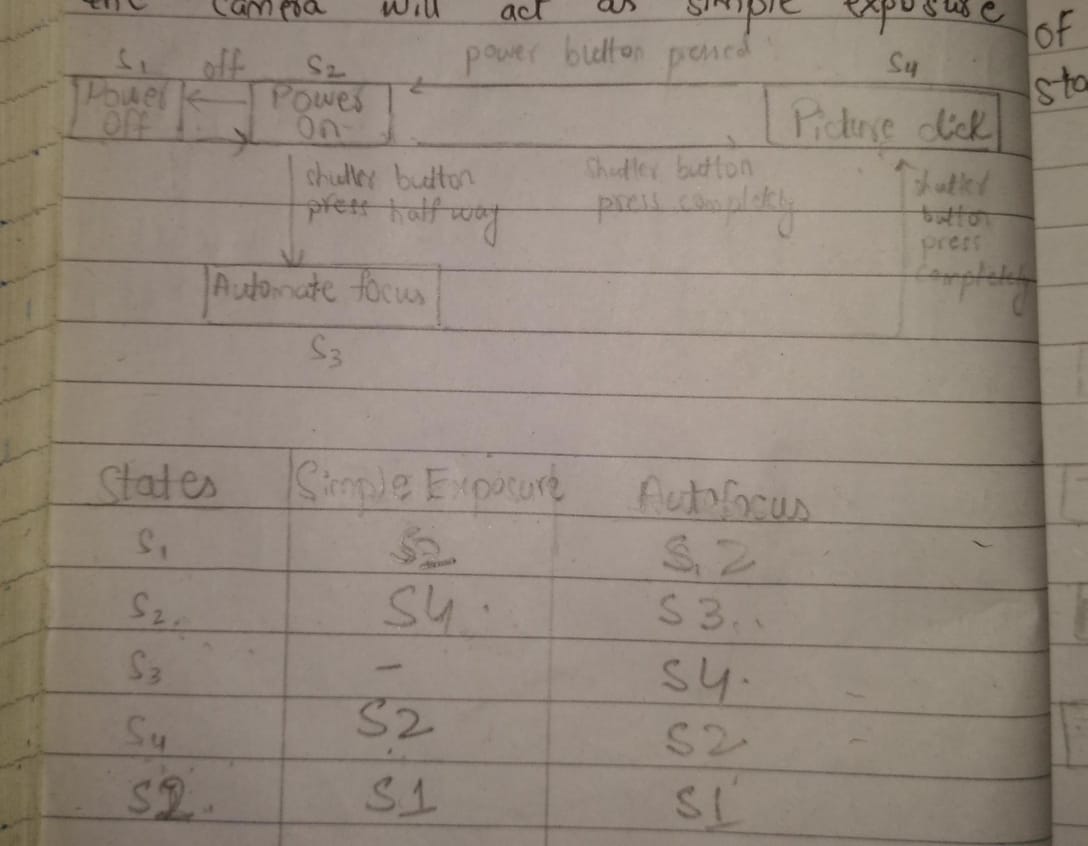 the camera will act as simple exposure
of
sta
S1 off S2 power button pressed S4
Power Off
Power On
Picture click
shutter button
press halfway
Shutter button
press completely
shutter
button
press
completely
Automate focus
S3
States Simple Exposure Autofocus
S1 S2 S2
S2 S4 S3
S3 - S4
S4 S2 S2
S2 S1 S1